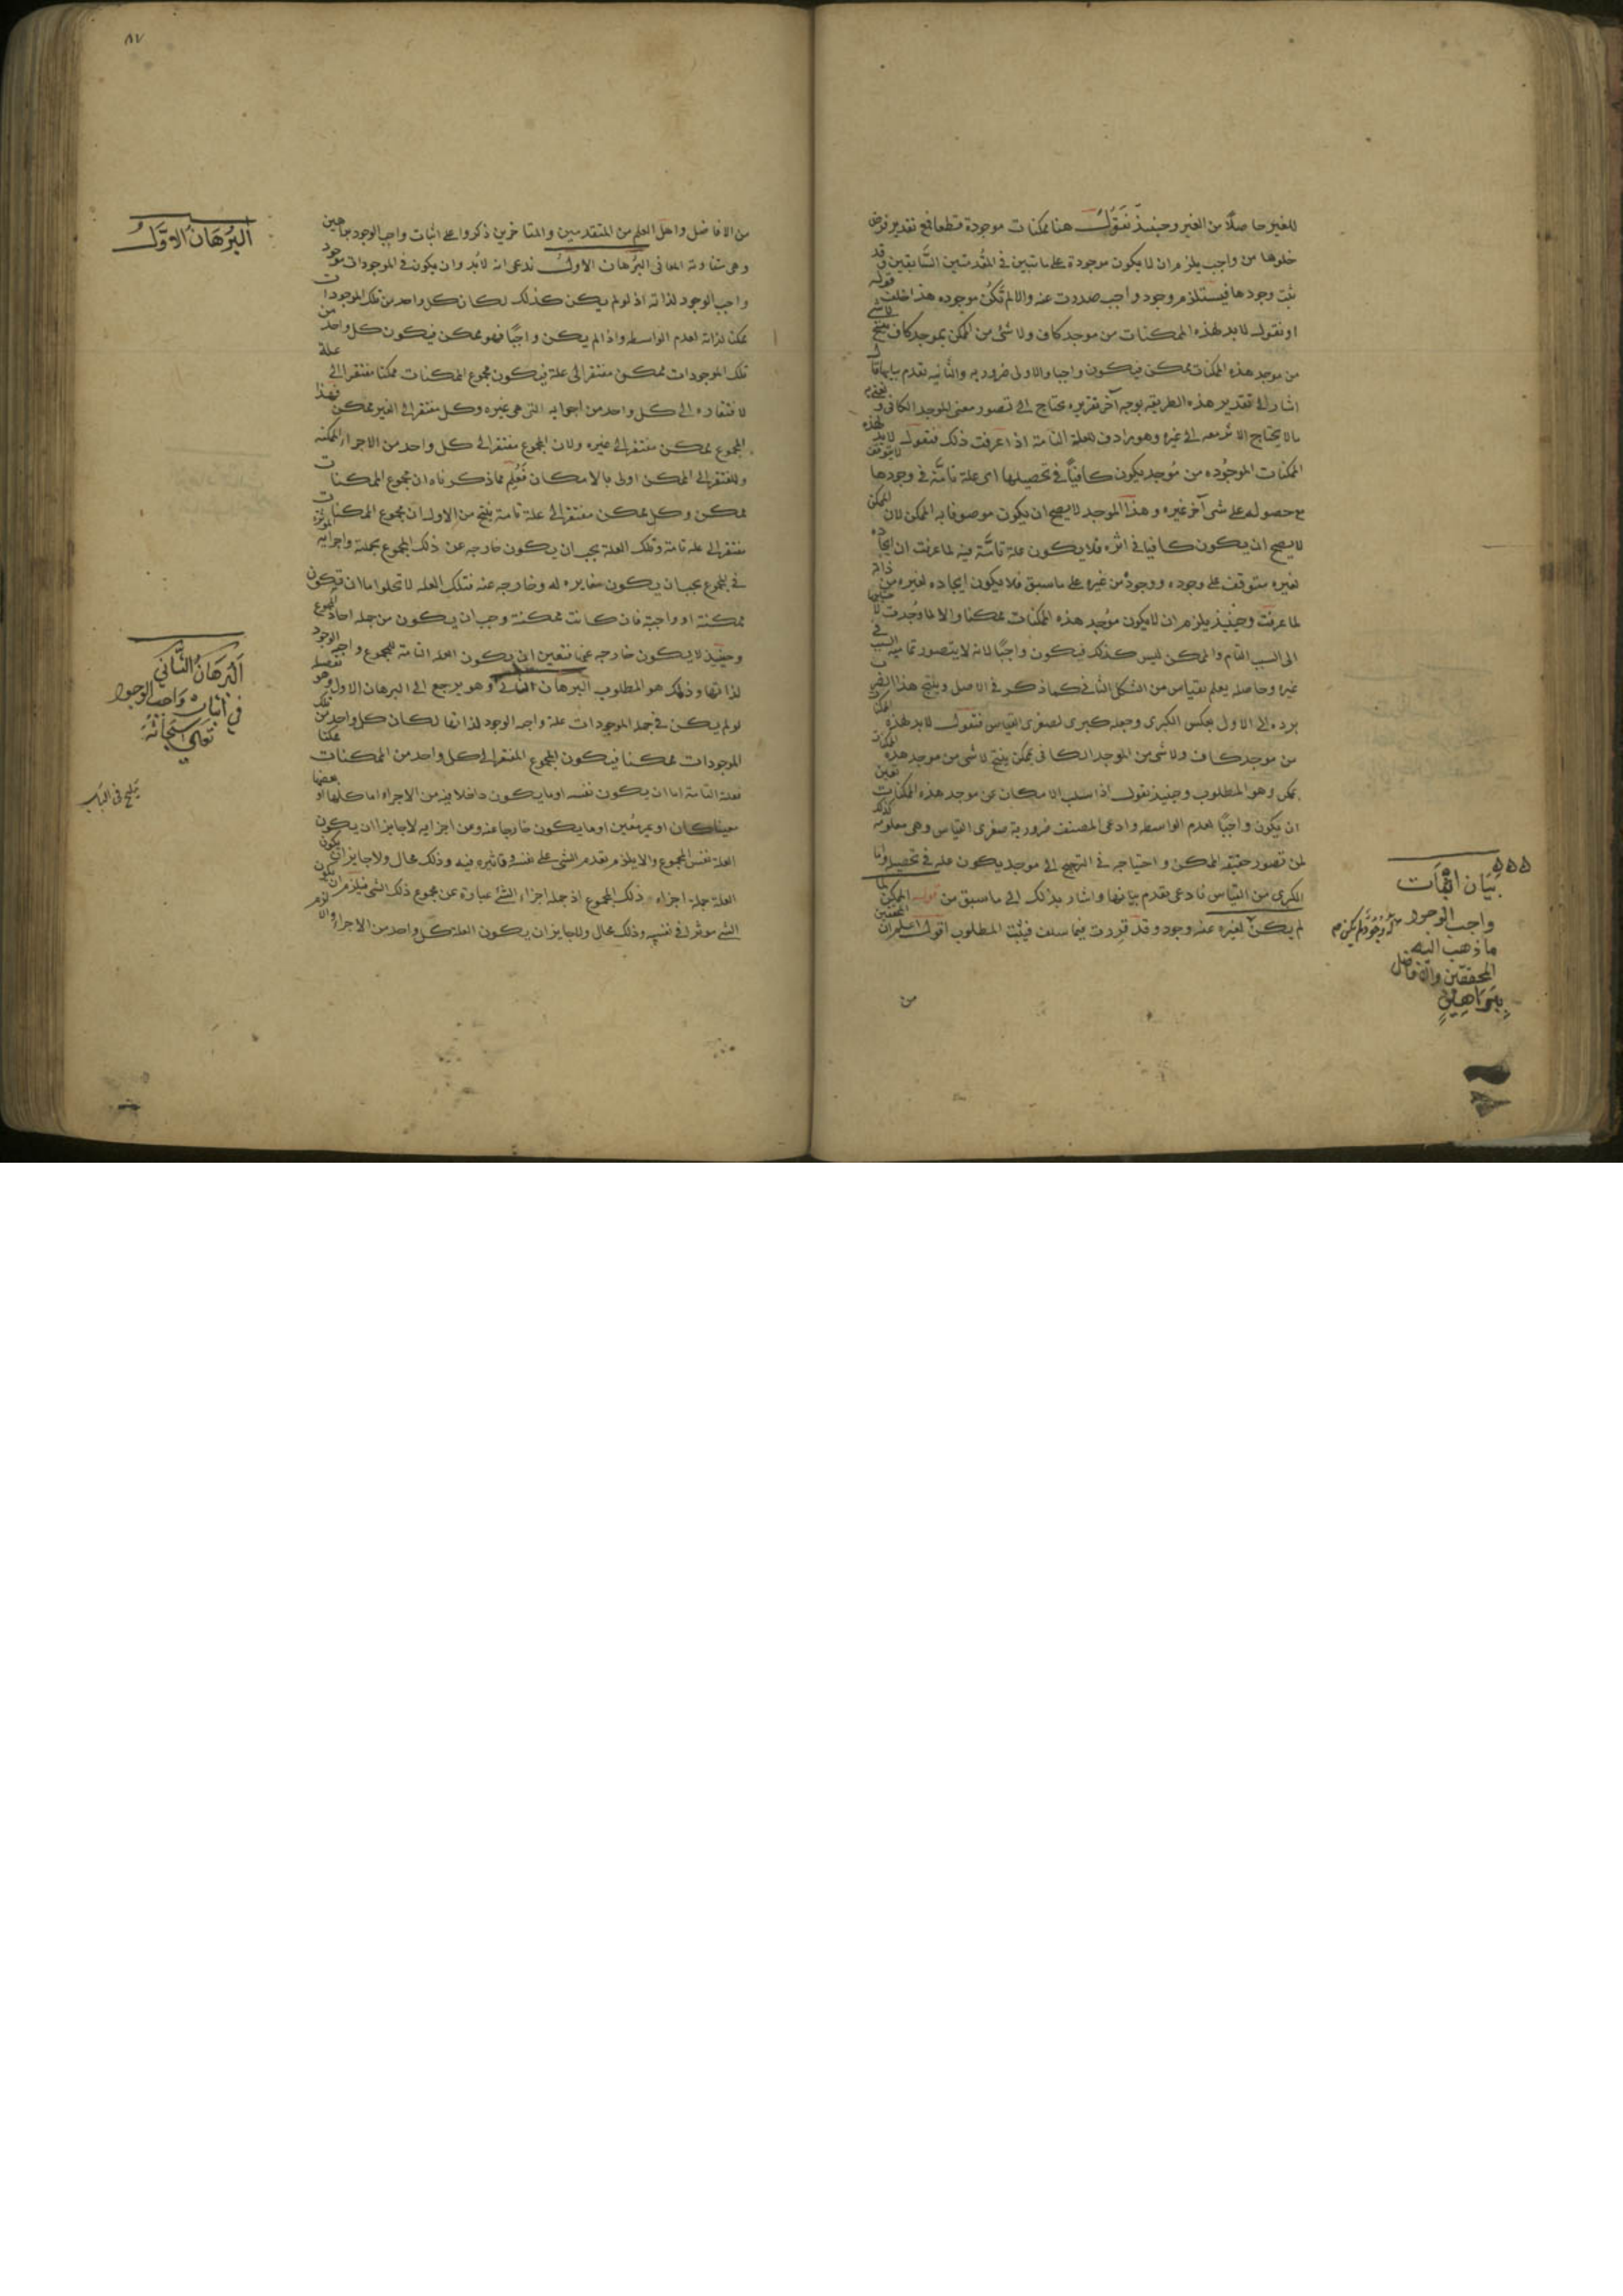 للغير حاصلا من الغير وحينئذ نقول هنا ممكنات موجودة قطعا فمع تقدير فرض
خلوها من واجب يلزم ان لا يكون موجودة على ما تبين في المقدمتين السابقتين وقد
ثبت وجودها فيستلزم وجود واجب صدرت عنه والا لم تكن موجوده هذا خلف قوله
او نقول لابد لهذه الممكنات من موجد كاف ولا شئ من الممكن بموجد كاف ينتج لا شئ
من موجد هذه الممكنات بممكن فيكون واجبا والاولى ضروريه والثانيه تقدم بيانها
اشار الى تقدير هذه الطريقه بوجه آخر تقريره يحتاج الى تصور معنى الموجد الكافي
ما لا يحتاج الاثر معه الى غيره وهو مرادف للعلة التامة اذا عرفت ذلك فنقول لابد لهذه
الممكنات الموجوده من موجد يكون كافيا في تحصيلها اى علة تامة في وجودها لا يتوقف
مع حصوله على شى آخر غيره وهذا الموجد لا يصح ان يكون موصوفا به الممكن لان الممكن
لا يصح ان يكون كافيا في اثره فلا يكون علة تامة فيه لما عرفت ان ايجاده
لغيره متوقف على وجوده ووجوده من غيره على ما سبق فلا يكون ايجاده لغيره من ذاته
لما عرفت وحينئذ يلزم ان لا يكون موجد هذه الممكنات ممكنا والا لما وجدت
الى السبب التام والممكن ليس كذلك فيكون واجبا لانه لا يتصور تماميه السبب في
غيره وحاصله يعلم بقياس من الشكل الثاني كما ذكر في الاصل وينتج هذا الضرب
برده الى الاول بعكس الكبرى وجعله كبرى لصغرى القياس فنقول لابد لهذه الممكنات
من موجد كاف ولا شى من الموجد الكافي بممكن ينتج لا شى من موجد هذه الممكنات
بممكن وهو المطلوب وحينئذ نقول اذا سلب الامكان عن موجد هذه الممكنات تعين
ان يكون واجبا لعدم الواسطه وادعى المصنف ضرورية صغرى القياس وهى معلومه كذلك
لمن تصور حقيقه الممكن واحتياجه في الترجيح الى موجد يكون علة في تحصيله واما
الكبرى من القياس فادعى تقدم بيانها واشار بذلك الى ما سبق من قوله الممكن لما
لم يكن لغيره عنه وجود وقد قررت فيما سلف فيثبت المطلوب اقول اعلم ان المحققين
من
بيان اثبات
واجب الوجود
ما ذهب اليه
المحققين والافاضل
ببراهين
٨٧
من الافاضل واهل العلم من المتقدمين والمتاخرين ذكروا على اثبات واجب الوجود براهين
وهى متفاوته المعانى البرهان الاول ندعى انه لابد وان يكون في الموجودات موجود
واجب الوجود لذاته اذ لو لم يكن كذلك لكان كل واحد من تلك الموجودات
ممكنا لذاته لعدم الواسطه واذا لم يكن واجبا فهو ممكن فيكون كل واحد من
تلك الموجودات ممكن مفتقرا الى علة فيكون مجموع الممكنات ممكنا مفتقرا الى علة
لافتقاره الى كل واحد من اجزايه التى هى غيره وكل مفتقر الى الغير ممكن فهذا
المجموع ممكن مفتقر الى غيره ولان المجموع مفتقر الى كل واحد من الاجزاء الممكنه
والمفتقر الى الممكن اولى بالامكان فعلم مما ذكرناه ان مجموع الممكنات
ممكن وكل ممكن مفتقر الى علة تامة ينتج من الاول ان مجموع الممكنات
مفتقر الى علة تامة وتلك العلة يجب ان يكون خارجه عن ذلك المجموع بجملته واجزايه الموثره
في المجموع يجب ان يكون مغايره له وخارجه عنه فتلك العله لا تخلوا اما ان تكون
ممكنة او واجبة فان كانت ممكنة وجب ان يكون من جمله احاد المجموع
وحينئذ لا يكون خارجه عنها فتعين ان يكون العله التامة للمجموع واجبه الوجود
لذاتها وذلك هو المطلوب البرهان الثانى وهو يرجع الى البرهان الاول تفصيله وهو
لو لم يكن في جملة الموجودات علة واجبه الوجود لذاتها لكان كل واحد من تلك
الموجودات ممكنا فيكون المجموع المفتقر الى كل واحد من الممكنات ممكنا
فعلته التامة اما ان يكون نفسه او ما يكون داخلا فيه من الاجزاء اما كلها او بعضها
معينا كان او غير معين او ما يكون خارجا عنه ومن اجزايه لا جايز ان يكون
العلة نفس المجموع والا يلزم تقدم الشى على نفسه وتاثيره فيه وذلك محال ولا جايز ان يكون
العلة جملة اجزاء ذلك المجموع اذ جملة اجزاء الشئ عبارة عن مجموع ذلك الشى فيلزم ان يكون
الشئ موثرا في نفسه وذلك محال ولا جايز ان يكون العلة كل واحد من الاجزاء والا لزم
البرهان الاول
البرهان الثانى
في اثبات واجب الوجود
سبحانه
تعالى